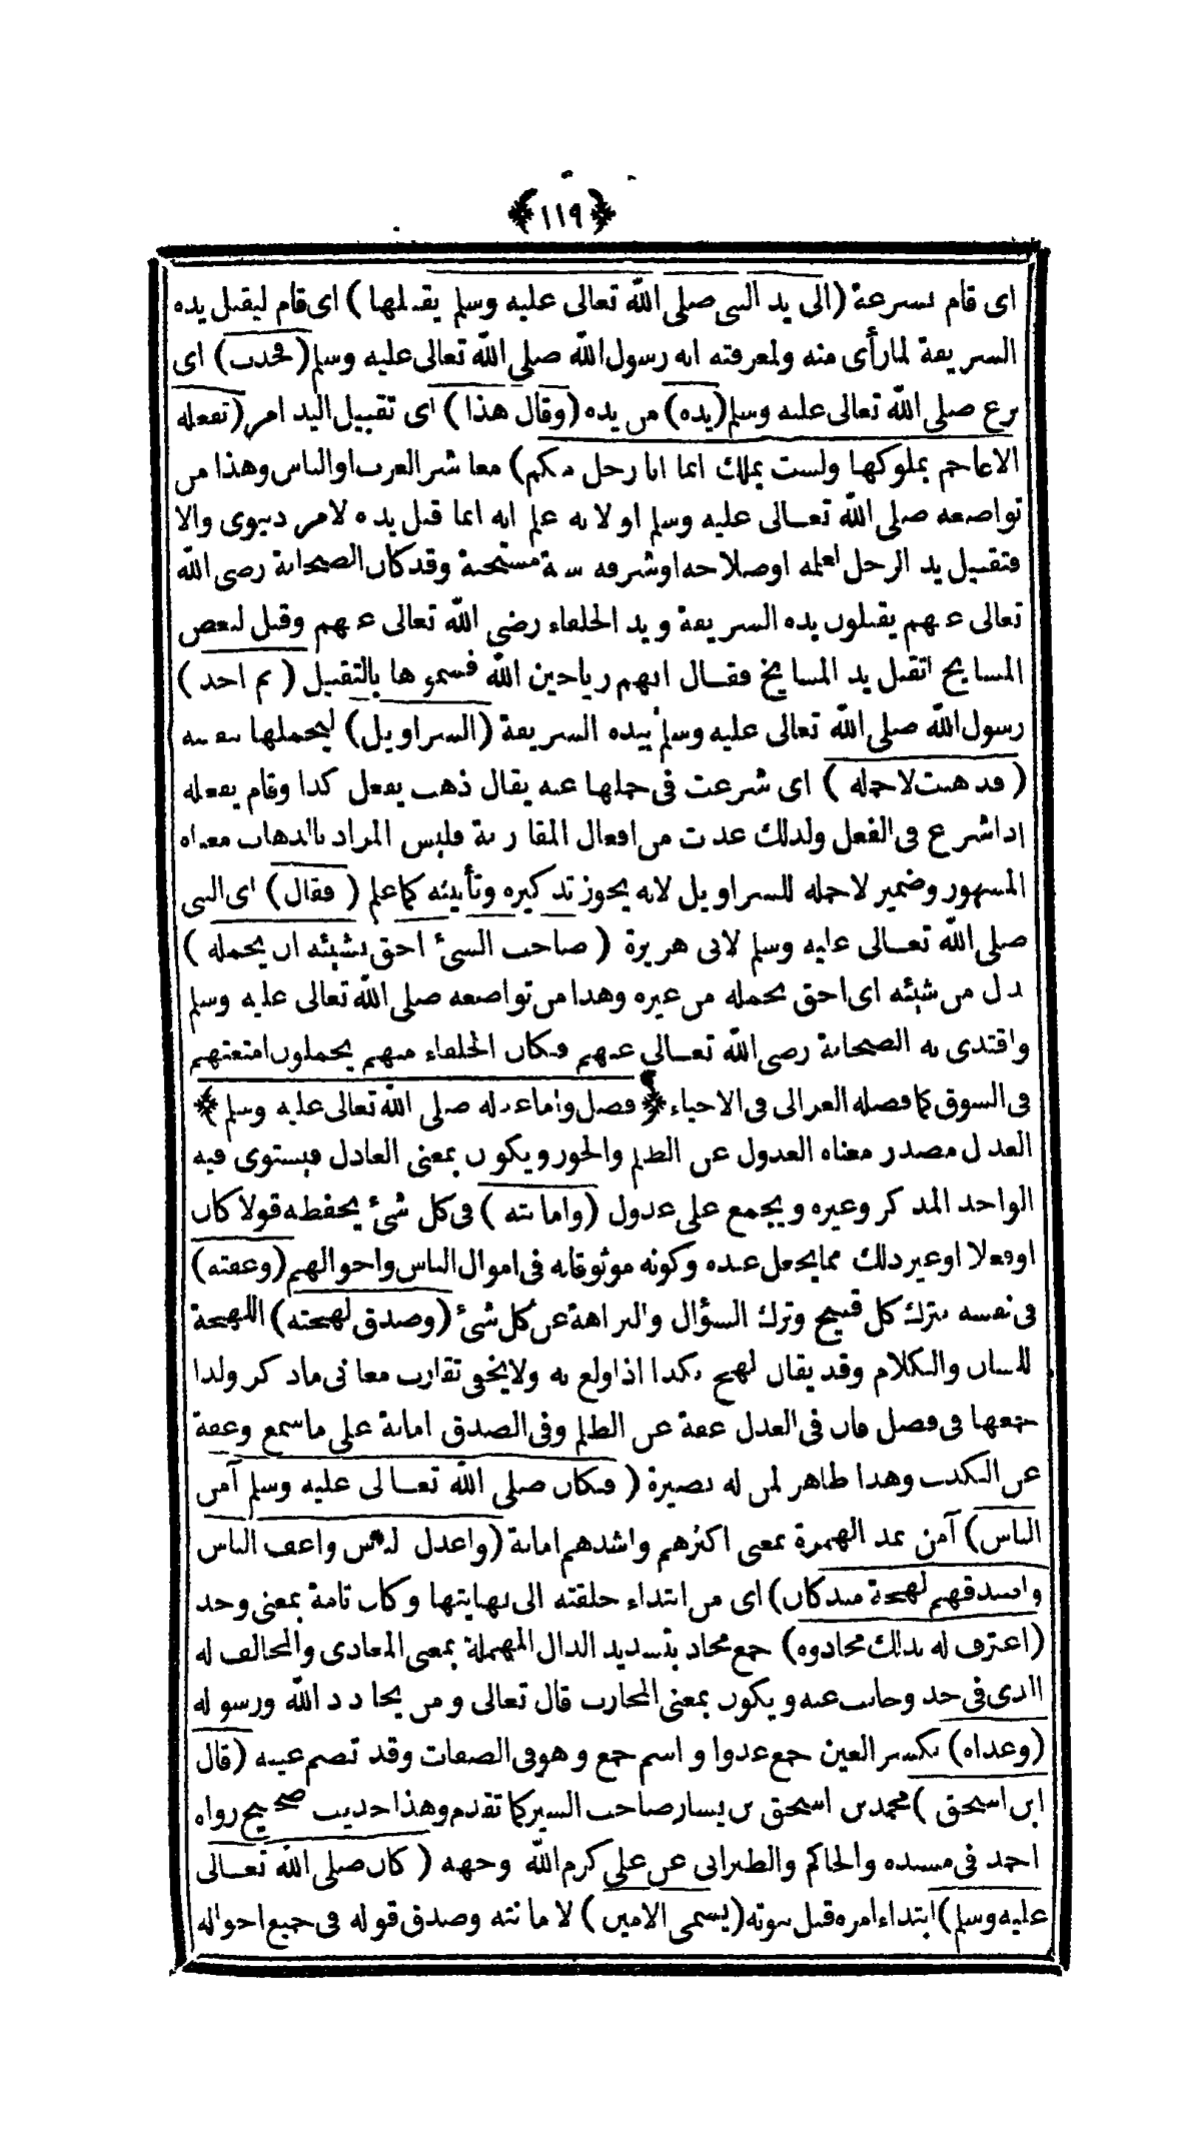 ﴿١١٩﴾
اى قام بسرعة (الى يد النبى صلى الله تعالى عليه وسلم يقبلها) اى قام ليقبل يده
الشريفة لما رأى منه ولمعرفته انه رسول الله صلى الله تعالى عليه وسلم (فجذب) اى
نزع صلى الله تعالى عليه وسلم (يده) من يده (وقال هذا) اى تقبيل اليد امر (تفعله
الاعاجم بملوكها ولست بملك انما انا رجل منكم) معاشر العرب او الناس وهذا من
تواضعه صلى الله تعالى عليه وسلم او لانه علم انه انما قبل يده لامر دنيوى والا
فتقبيل يد الرجل لعلمه او صلاحه او شرفه سنة مستحبة وقد كان الصحابة رضى الله
تعالى عنهم يقبلون يده الشريفة ويد الخلفاء رضى الله تعالى عنهم وقيل لبعض
المشايخ اتقبل يد المشايخ فقال انهم رياحين الله فشموها بالتقبيل (ثم اخذ)
رسول الله صلى الله تعالى عليه وسلم بيده الشريفة (السراويل) ليحملها بنفسه
(فذهبت لاحمله) اى شرعت فى حملها عنه يقال ذهب يفعل كذا وقام يفعله
اذا شرع فى الفعل ولذلك عدت من افعال المقاربة فليس المراد بالذهاب معناه
المشهور وضمير لاحمله للسراويل لانه يجوز تذكيره وتأنيثه كما علم (فقال) اى النبى
صلى الله تعالى عليه وسلم لابى هريرة (صاحب الشئ احق بشيئه ان يحمله)
بدل من شيئه اى احق بحمله من غيره وهذا من تواضعه صلى الله تعالى عليه وسلم
واقتدى به الصحابة رضى الله تعالى عنهم فكان الخلفاء منهم يحملون امتعتهم
فى السوق كما فصله الغزالى فى الاحياء ﴿فصل واما عدله صلى الله تعالى عليه وسلم﴾
العدل مصدر معناه العدول عن الظلم والجور ويكون بمعنى العادل فيستوى فيه
الواحد المذكر وغيره ويجمع على عدول (وامانته) فى كل شئ يحفظه قولا كان
او فعلا او غير ذلك مما يجعل عنده وكونه موثوقا به فى اموال الناس واحوالهم (وعفته)
فى نفسه بترك كل قبيح وترك السؤال والنزاهة عن كل شئ (وصدق لهجته) اللهجة
للسان والكلام وقد يقال لهج بكذا اذا اولع به ولا يخفى تقارب معانى ما ذكر ولذا
جمعها فى فصل فان فى العدل عفة عن الظلم وفى الصدق امانة على ما سمع وعفة
عن الكذب وهذا ظاهر لمن له بصيرة (فكان صلى الله تعالى عليه وسلم آمن
الناس) آمن بمد الهمزة بمعنى اكثرهم واشدهم امانة (واعدل الناس واعف الناس
واصدقهم لهجة منذ كان) اى من ابتداء خلقته الى نهايتها وكان تامة بمعنى وجد
(اعترف له بذلك محادوه) جمع محاد بتشديد الدال المهملة بمعنى المعادى والمخالف له
الذى فى حد وجانب عنه ويكون بمعنى المحارب قال تعالى ومن يحادد الله ورسوله
(وعداه) بكسر العين جمع عدوا واسم جمع وهو فى الصفات وقد تضم عينه (قال
ابن اسحق) محمد بن اسحق بن يسار صاحب السير كما تقدم وهذا حديث صحيح رواه
احمد فى مسنده والحاكم والطبرانى عن على كرم الله وجهه (كان صلى الله تعالى
عليه وسلم) ابتداء امره قبل نبوته (يسمى الامين) لامانته وصدق قوله فى جميع احواله